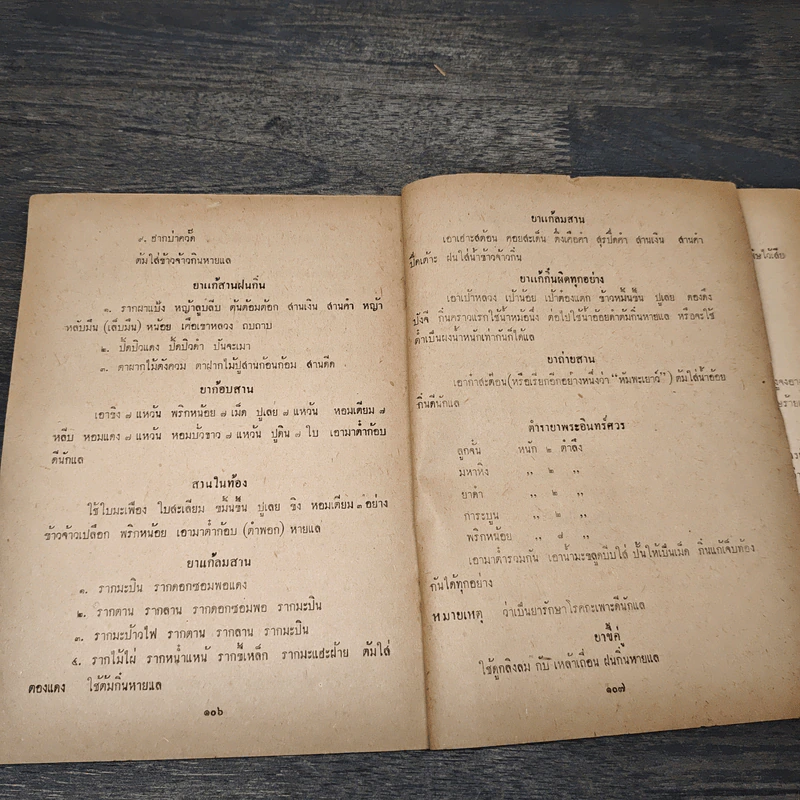 ๙. ฮากบ่าคว้ด
ต้มใส่ข้าวจ้าวกินหายแล
ยาแก้สานฝนกิ๋น
๑. รากผาแป้ง หญ้าลูบลีบ ตุ้นต้อมต้อก สานเงิน สานคำ หญ้า
หลับมืน (เล็บมืน) หน้อย เคือเขาหลวง ถบถาบ
๒. ปัดปิวแดง ปัดปิวดำ ปันจะเมา
๓. ตาผากไม้ดังควม ตาฝากไม้ปุสานก้อนก้อม สานดีด
ยาก๊อบสาน
เอาขิง ๗ แหว้น พริกหน้อย ๗ เม็ด ปูเลย ๗ แหว้น หอมเตียม ๗
หลีบ หอมแดง ๗ แหว้น หอมบัวขาว ๗ แหว้น ปูดิน ๗ ใบ เอามาต๋ำก๊อบ
ดีนักแล
สานในท้อง
ใช้ใบมะเฟือง ใบสะเลียม ขมิ้นขื่น ปูเลย ขิง หอมเตียม ๓ อย่าง
ข้าวจ้าวเปลือก พริกหน้อย เอามาต๋ำก๊อบ (ตำพอก) หายแล
ยาแก้ลมสาน
๑. รากมะปิน รากดอกซอมพอแดง
๒. รากตาน รากลาน รากดอกซอมพอ รากมะปิน
๓. รากมะป๊าวไฟ รากตาน รากลาน รากมะปิน
๔. รากไม้ไผ่ รากหน๋ำแหน้ รากขี้เหล็ก รากมะแฮะฝ้าย ต้มใส่
ตองแดง ใช้ต้มกิ๋นหายแล
๑๐๖
ยาแก้ลมสาน
เอาเฮาะสต้อน คอยสะเด็น ดั่งเคือคำ สุรปีดคำ สานเงิน สานคำ
ปีดเต้าะ ฝนใส่น้ำข้าวจ้าวกิ๋น
ยาแก้กิ๋นผิดทุกอย่าง
เอาเปล้าหลวง เปล้าน้อย เปล้าต๋องแตก ข้าวหมิ้นขื่น ปูเลย ดองดึง
บังจี กิ๋นคราวแรกใช้น้ำหม้อนึ่ง ต่อไปใช้น้ำอ้อยดำต้มกิ๋นหายแล หรือจะใช้
ตำเป็นผงน้ำหนักเท่ากันก็ได้แล
ยาถ่ายสาน
เอากำสะต๊อน (หรือเรียกอีกอย่างหนึ่งว่า “หัมพะเยาว์”) ต้มใส่น้ำอ้อย
กิ๋นดีนักแล
ตำรายาพระอินทร์ศวร
ลูกจัน หนัก ๒ ตำลึง
มหาหิง ,, ๒ ,,
ยาดำ ,, ๒ ,,
การะบูน ,, ๒ ,,
พริกหน้อย ,, ๗ ,,
เอามาตำรวมกัน เอาน้ำมะขลูดบีบใส่ ปั้นให้เป็นเม็ด กิ๋นแก้เจ็บท้อง
กันได้ทุกอย่าง
หมายเหตุ ว่าเป็นยารักษาโรคกะเพาะดีนักแล
ยาขี้คู่
ใช้ดูกลิงลม กับ เหล้าเถื่อน ฝนกิ๋นหายแล
๑๐๗